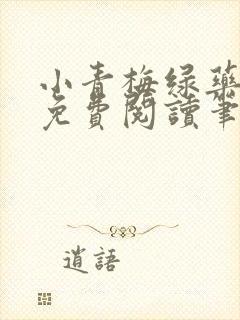 小青梅绿药
免費閱讀筆
逍語